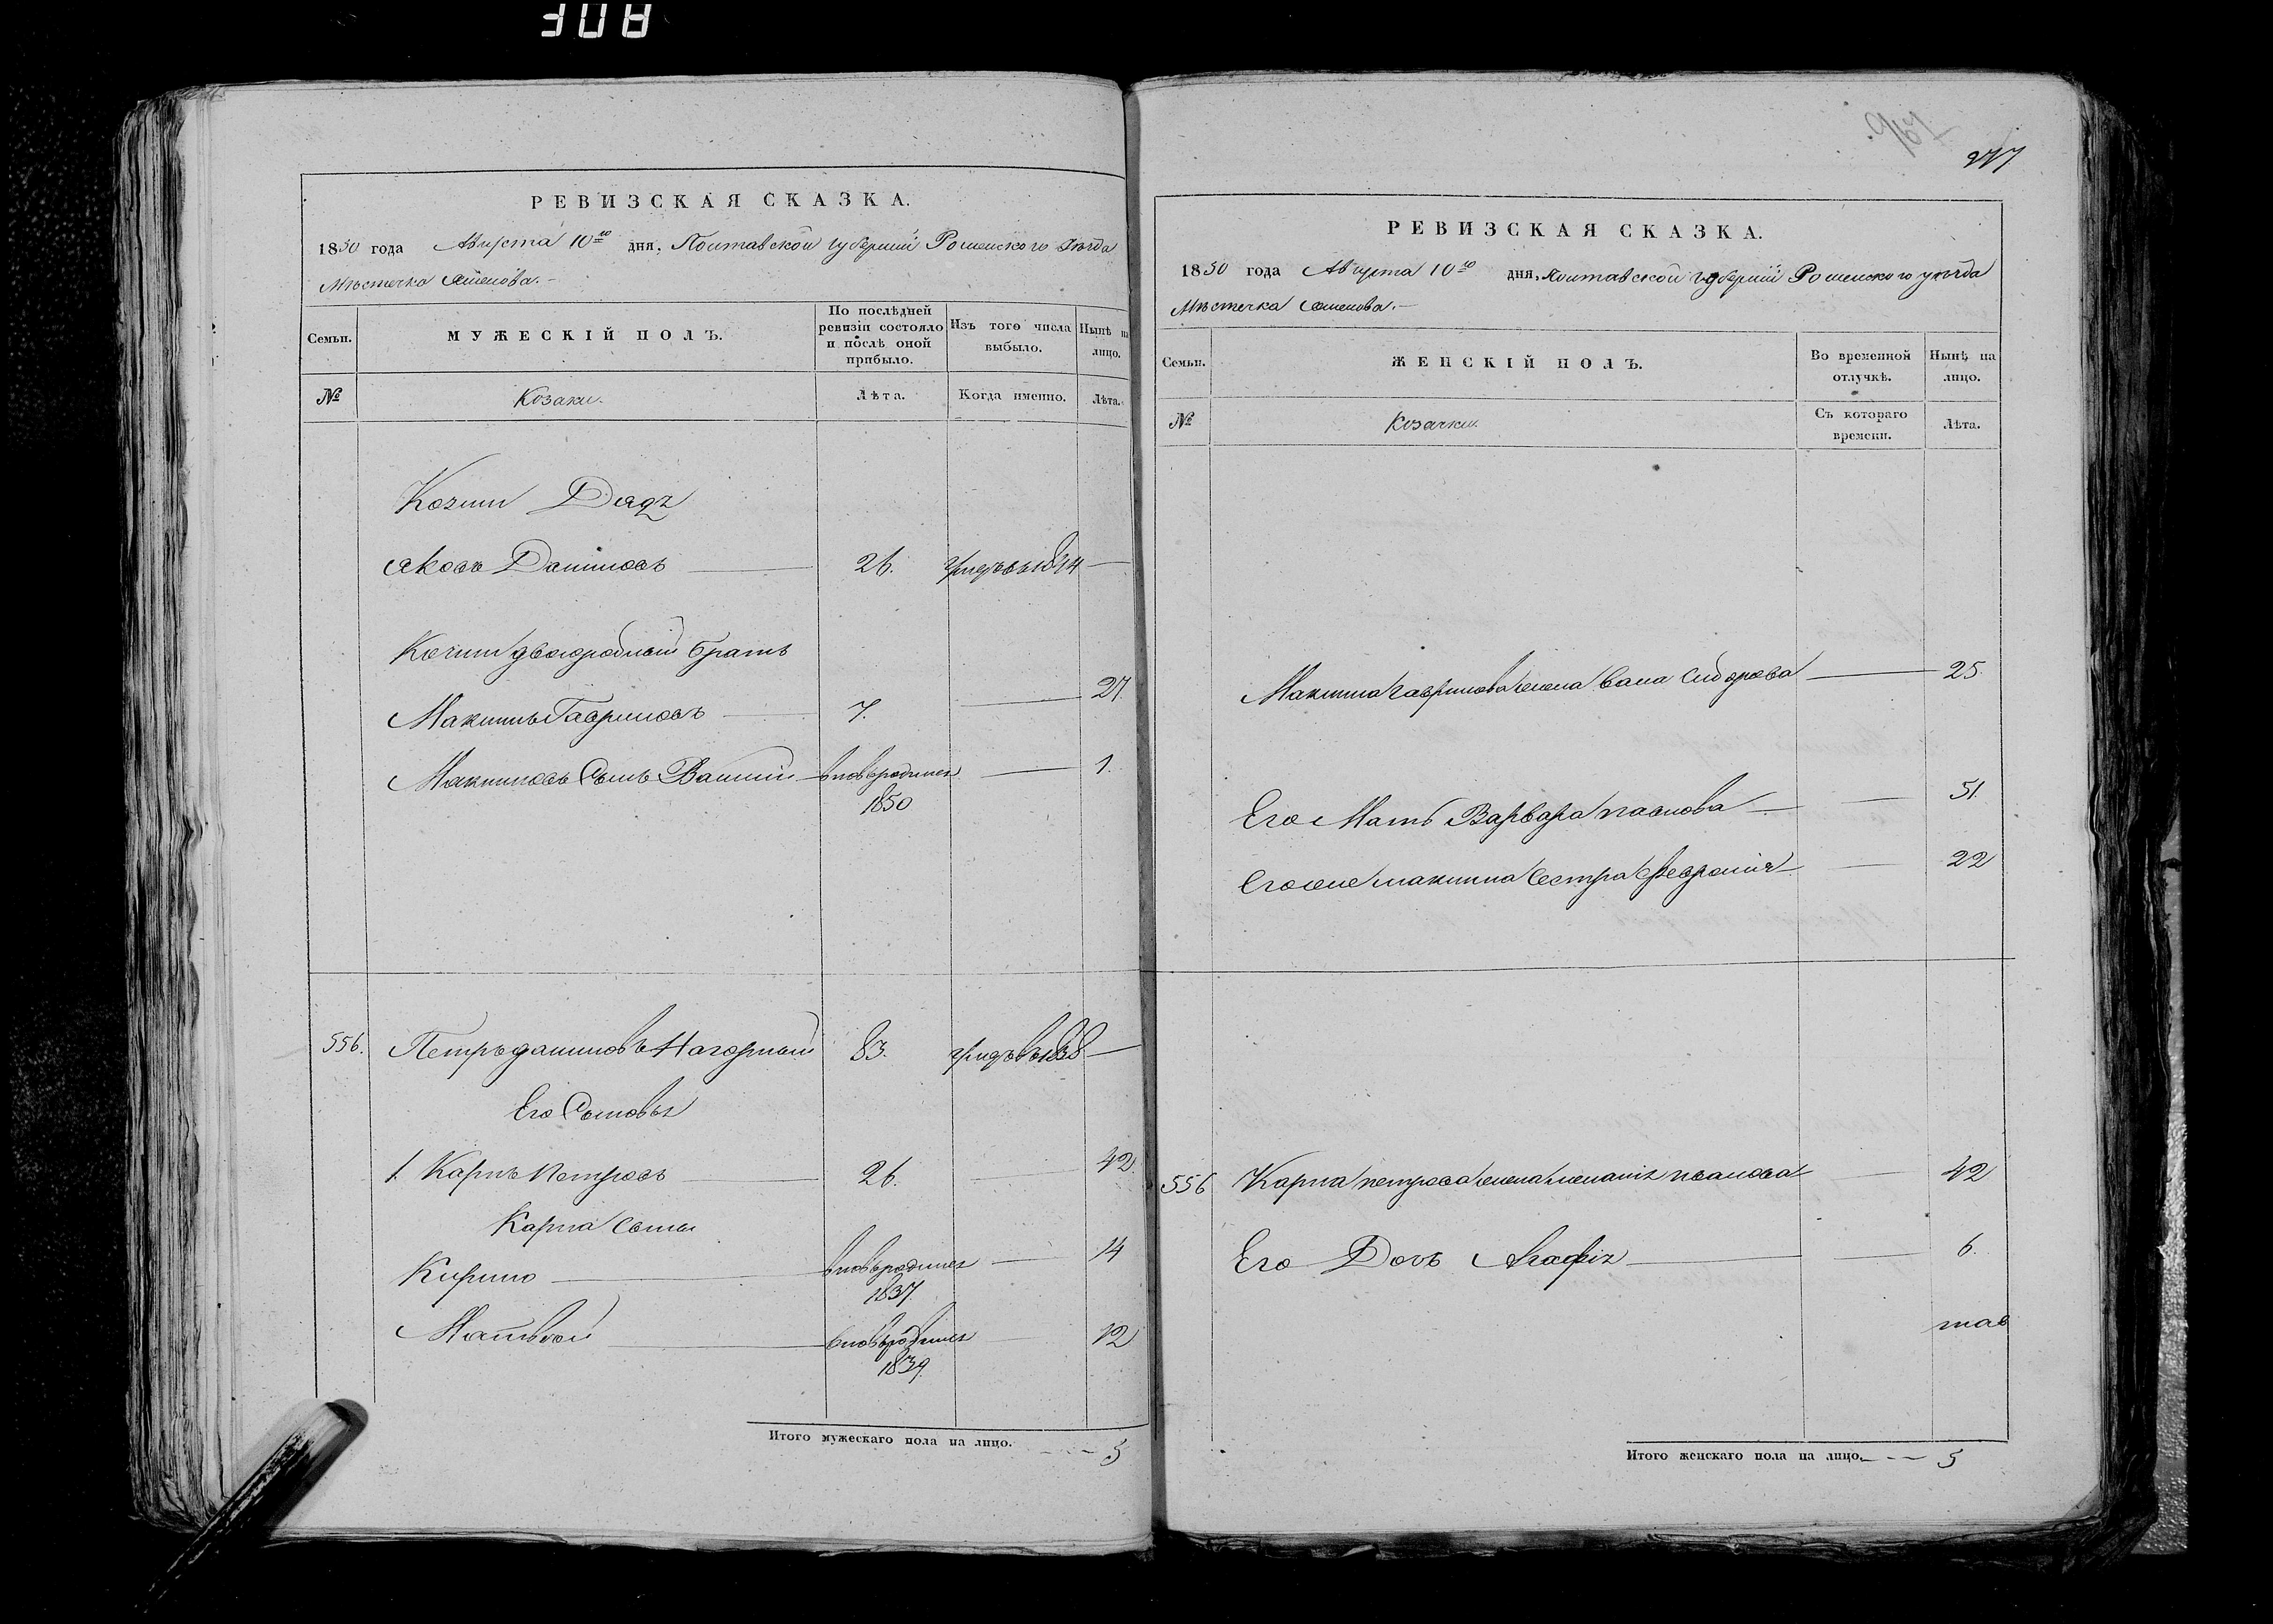 РЕВИЗСКАЯ СКАЗКА.
1850 года Августа 10го дня, Полтавской губернии Роменского уѣзда
Мѣстечка Смелова.
Семьи.
МУЖЕСКІЙ ПОЛЪ.
По послѣдней ревизіи состояло и послѣ оной прибыло.
Изъ того числа выбыло.
Нынѣ на лицо.
№
Козаки.
Лѣта.
Когда именно.
Лѣта.
Дядя
Яковъ Даниловъ 26.
двоюродный братъ
Максимъ Гавриловъ 7. 27.
Максимовъ Сынъ Василий вновьродился 1. 
1850
556. Петръ даниловъ Нагорный 83.
Его Сыновья
1. Карпъ Петровъ 26. 42.
Карпа Сыны
Кирило вновьродился 14
1837.
Матвѣй вновьродился 12
1839.
Итого мужескаго пола на лицо. 5
277
РЕВИЗСКАЯ СКАЗКА.
1850 года Августа 10го дня, Полтавской губерний Роменского уѣзда
Мѣстечка Смелова.
Семьи.
ЖЕНСКІЙ ПОЛЪ.
Во временной отлучкѣ.
Нынѣ на лицо.
№
Козачки.
Съ котораго времени.
Лѣта.
Максима гаврилова жена Сидорова 25
Его Мать Варвара павлова 51.
Егоже максима Сестра Феврониія 22
556 Карпа петрова жена иванова 42
Его Дочъ Агафия 6.
Итого женскаго пола на лицо. 5